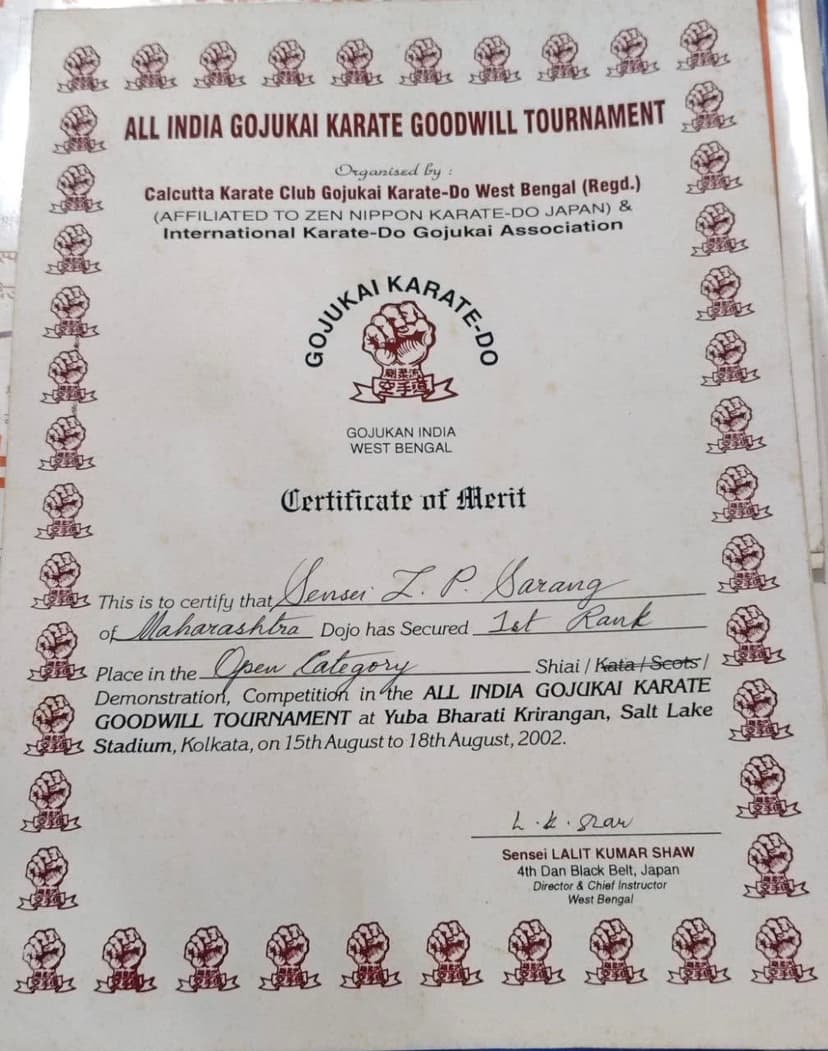 ALL INDIA GOJUKAI KARATE GOODWILL TOURNAMENT
Organised by :
Calcutta Karate Club Gojukai Karate-Do West Bengal (Regd.)
(AFFILIATED TO ZEN NIPPON KARATE-DO JAPAN) &
International Karate-Do Gojukai Association
GOJUKAI KARATE-DO
剛柔流
空手道
GOJUKAN INDIA
WEST BENGAL
Certificate of Merit
This is to certify that Sensei L. P. Sarang
of Maharashtra Dojo has Secured 1st Rank
Place in the Open Category Shiai / Kata / Scots /
Demonstration, Competition in the ALL INDIA GOJUKAI KARATE
GOODWILL TOURNAMENT at Yuba Bharati Krirangan, Salt Lake
Stadium, Kolkata, on 15th August to 18th August, 2002.
L. K. Shaw
Sensei LALIT KUMAR SHAW
4th Dan Black Belt, Japan
Director & Chief Instructor
West Bengal